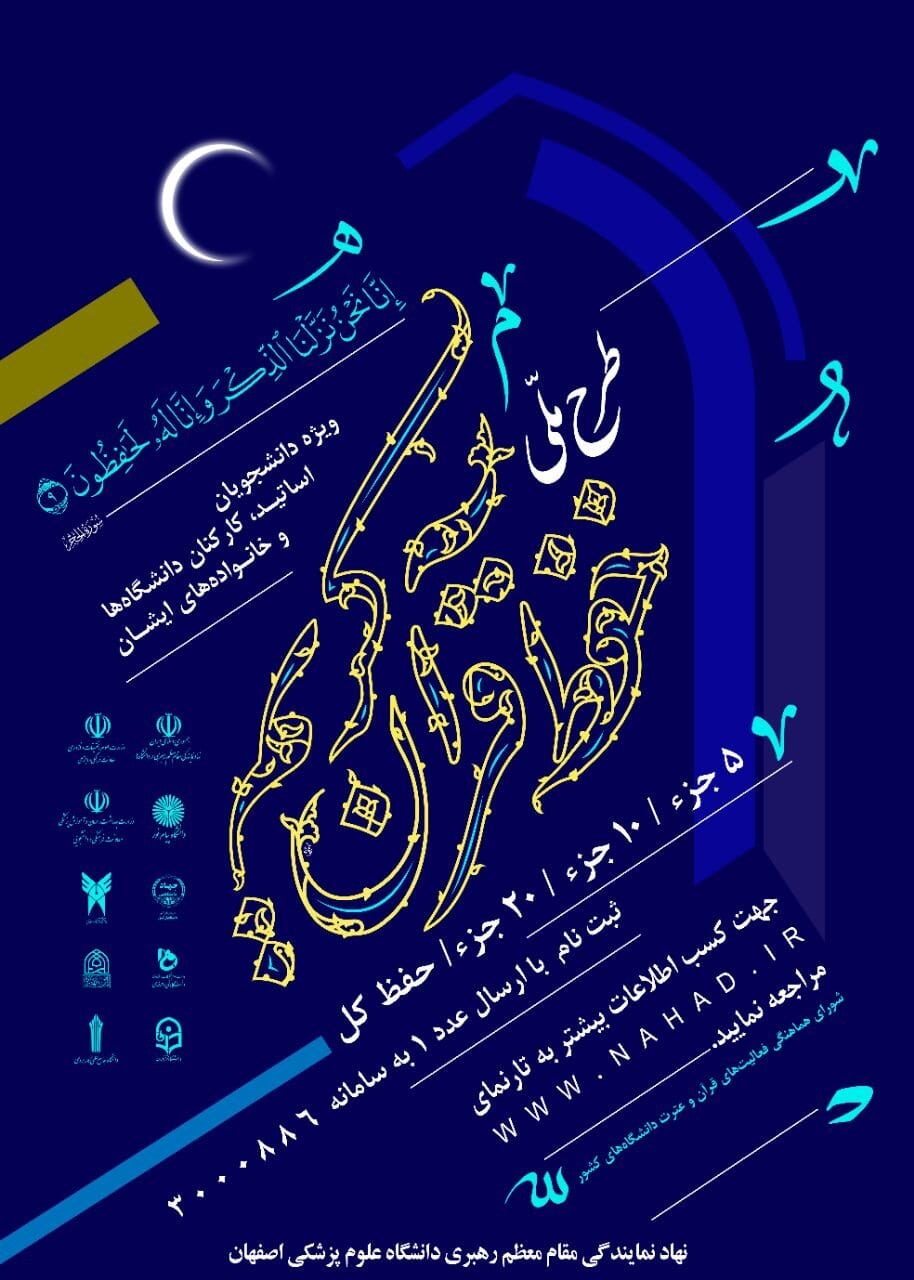 إِنَّا نَحْنُ نَزَّلْنَا ٱلذِّكْرَ وَإِنَّا لَهُۥ لَحَٰفِظُونَ ۹
طرح ملّی
حفظ قرآن کریم
ویژه دانشجویان
اساتید، کارکنان دانشگاه‌ها
و خانواده‌های ایشان
۵ جزء / ۱۰ جزء / ۲۰ جزء/ حفظ کل
ثبت نام با ارسال عدد ۱ به سامانه ۳۰۰۰۰۸۸۶
جهت کسب اطلاعات بیشتر به تارنمای
WWW.NAHAD.IR
مراجعه نمایید.
شورای هماهنگی فعالیت‌های قرآن و عترت دانشگاه‌های کشور
دانشگاه پیام نور
نهاد نمایندگی مقام معظم رهبری دانشگاه علوم پزشکی اصفهان